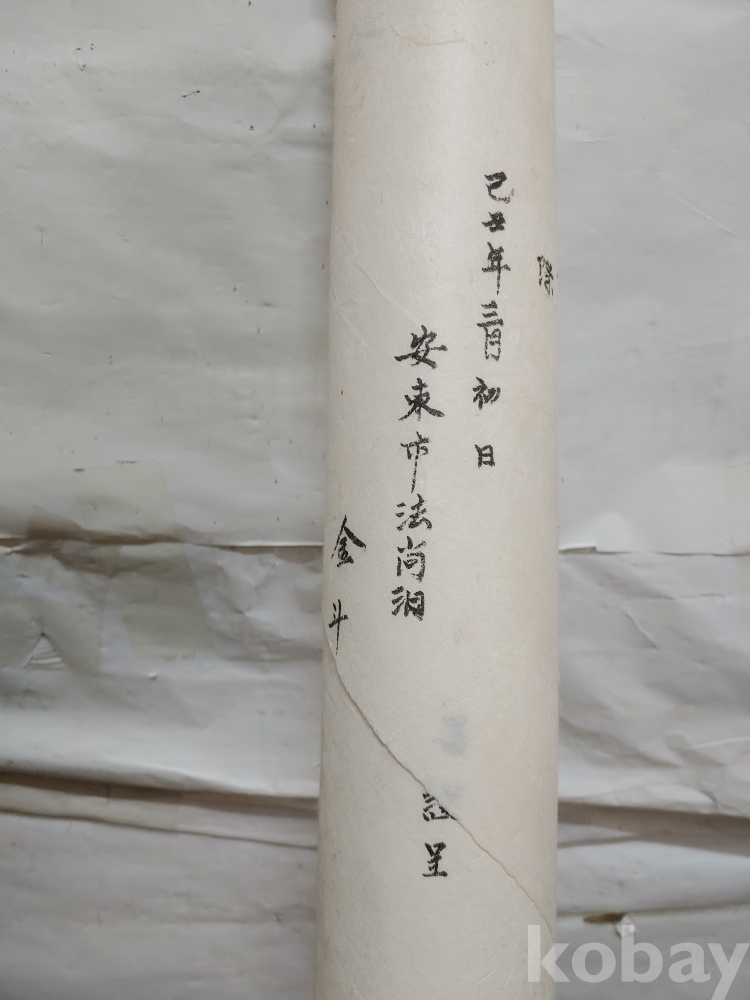 己丑年三月初 日
安東市法尚洞
金斗
呈
kobay